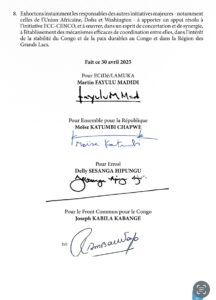 8. Exhortons instamment les responsables des autres initiatives majeures - notamment
celles de l'Union Africaine, Doha et Washington - à apporter un appui résolu à
l'initiative ECC-CENCO, et à œuvrer, dans un esprit de concertation et de synergie,
à l'établissement des mécanismes efficaces de coordination entre elles, dans l'intérêt
de la stabilité du Congo et de la paix durables au Congo et dans la Région des
Grands Lacs.
Fait ce 30 avril 2025
Pour ECIDé/LAMUKA
Martin FAYULU MADIDI
Fayulu M Mad
Pour Ensemble pour la République
Moïse KATUMBI CHAPWE
Moïse Katumbi
Pour Envol
Delly SESANGA HIPUNGU
Pour le Front Commun pour le Congo
Joseph KABILA KABANGE